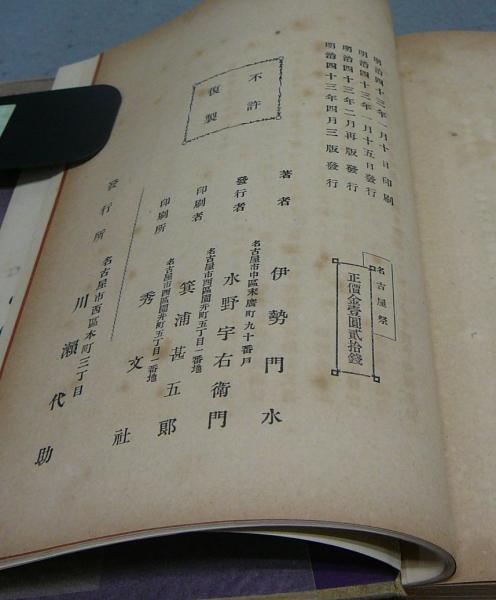 明治四十三年一月十日印刷
明治四十三年一月十五日發行
明治四十三年二月再版發行
明治四十三年四月三版發行
名古屋祭
正價金壹圓貳拾錢
不許
復製
著者
伊勢門水
名古屋市中區末廣町九十番戶
發行者
水野宇右衛門
名古屋市西區園井町五丁目一番地
印刷者
箕浦甚五郎
名古屋市西區園井町五丁目一番地
印刷所
秀文社
發行所
名古屋市西區本町三丁目
川瀨代助